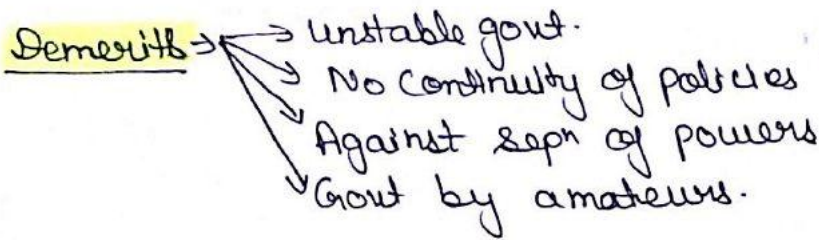 Demerits → → Unstable govt.
→ No Continuity of policies
→ Against sepn of powers
→ Govt by amateurs.